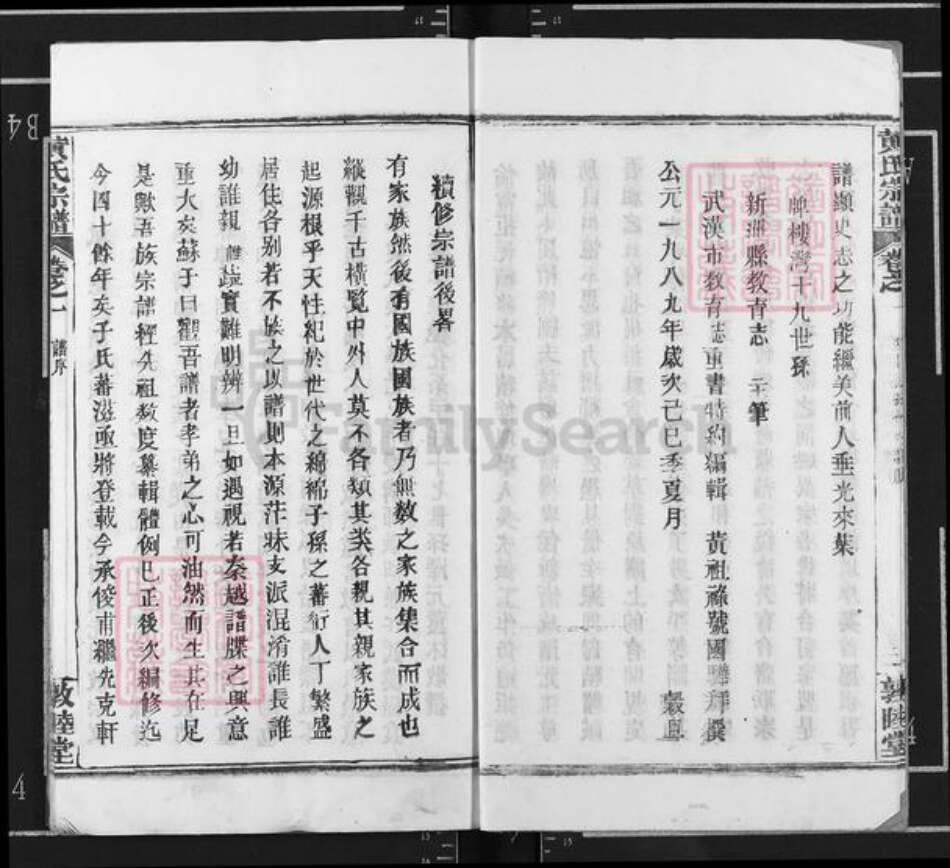 黃氏宗譜
卷之一
敦睦堂
譜纘史志之功能繼美前人垂光來葉
牌樓灣十九世孫
新洲縣教育志 主筆
武漢市教育志重書特約編輯 黃祖祿號國 撰
公元一九八九年歲次己巳季夏月 穀旦
續修宗譜後畧
有家族然後有國族國族者乃無數之家族集合而成也
縱觀千古橫覽中外人莫不各類其类各親其親家族之
起源根乎天性紀於世代之綿綿子孫之蕃衍人丁繁盛
居住各别若不族之以譜則本源茫昧支派混淆誰長誰
幼誰親誰疏實難明辨一旦如遇視若秦越譜牒之興意
重大矣蘇子曰觀吾譜者孝弟之心可油然而生其在足
是歟吾族宗譜經先祖数度纂輯體例已正後次編修迄
今四十餘年矣子氏蕃滋亟將登載今承俊甫繼先克軒
黃氏宗譜
卷之一
譜序
敦睦堂
FamilySearch
B4
4
4